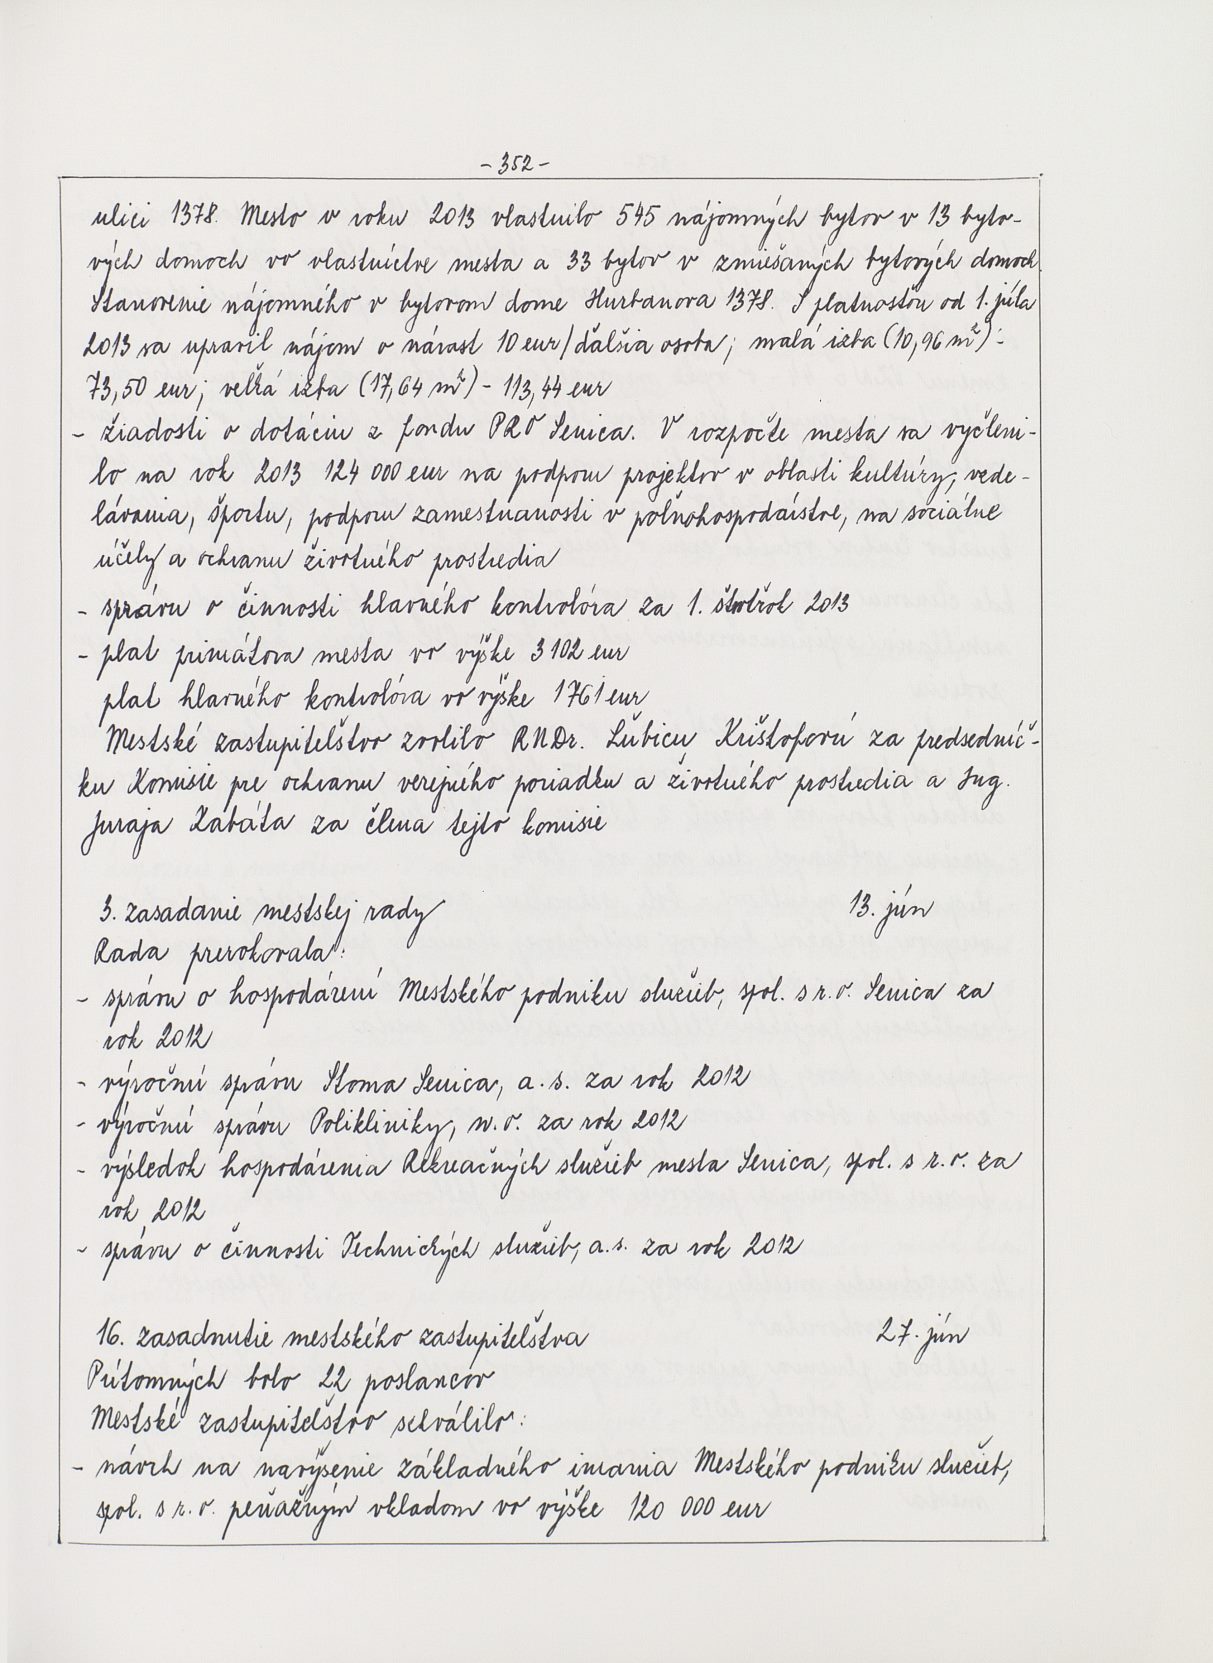 - 352 -
ulici 1378. Mesto v roku 2013 vlastnilo 545 nájomných bytov v 13 byto-
vých domoch vo vlastníctve mesta a 33 bytov v zmiešaných bytových domoch.
Stanovenie nájomného v bytovom dome Hurbanova 1378. S platnosťou od 1. júla
2013 sa upravil nájom o nárast 10 eur/ďalšia osoba; malá izba (10,96 m²) -
73,50 eur; veľká izba (17,64 m²) - 113,44 eur
- žiadosti o dotáciu z fondu PRO Senica. V rozpočte mesta sa vyčleni-
lo na rok 2013 124 000 eur na podporu projektov v oblasti kultúry, vzde-
lávania, športu, podporu zamestnanosti v poľnohospodárstve, na sociálne
účely a ochranu životného prostredia
- správu o činnosti hlavného kontrolóra za 1. štvrťrok 2013
- plat primátora mesta vo výške 3 102 eur
plat hlavného kontrolóra vo výške 1 761 eur
Mestské zastupiteľstvo zvolilo RNDr. Ľubicu Krištofovú za predsedníč-
ku Komisie pre ochranu verejného poriadku a životného prostredia a Ing.
Juraja Kabáta za člena tejto komisie
3. zasadanie mestskej rady 13. jún
Rada prerokovala:
- správu o hospodárení Mestského podniku služieb, spol. s r. o. Senica za
rok 2012
- výročnú správu Stoma Senica, a. s. za rok 2012
- výročnú správu Polikliniky, n. o. za rok 2012
- výsledok hospodárenia Rekreačných služieb mesta Senica, spol. s r. o. za
rok 2012
- správu o činnosti Technických služieb, a. s. za rok 2012
16. zasadnutie mestského zastupiteľstva 27. jún
Prítomných bolo 22 poslancov
Mestské zastupiteľstvo schválilo:
- návrh na navýšenie základného imania Mestského podniku služieb,
spol. s r. o. peňažným vkladom vo výške 120 000 eur